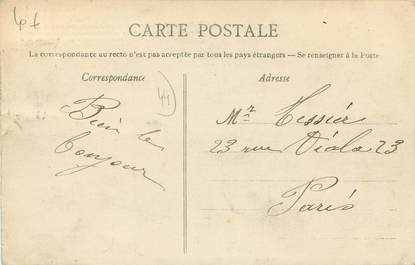 4f
CARTE POSTALE
La correspondance au recto n'est pas acceptée par tous les pays étrangers — Se renseigner à la Poste
Correspondance
44
Adresse
Bien le
Bonjour
Mr Tessier
23 rue Viala 23
Paris